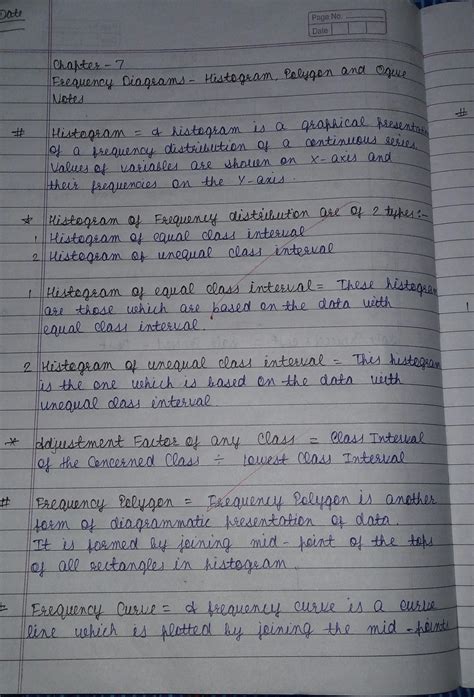 Date
Page No.
Date
Chapter - 7
Frequency Diagrams - Histogram, Polygon and Ogive
Notes
# Histogram = A histogram is a graphical presentation
of a frequency distribution of a continuous series.
Values of variables are shown on X-axis and
their frequencies on the Y-axis.
* Histogram of Frequency distribution are of 2 types:-
1 Histogram of equal class interval
2 Histogram of unequal class interval
1 Histogram of equal class interval = These histogram
are those which are based on the data with
equal class interval.
2 Histogram of unequal class interval = This histogram
is the one which is based on the data with
unequal class interval
* Adjustment Factor of any Class = Class Interval
of the Concerned Class ÷ lowest Class Interval
# Frequency Polygon = Frequency Polygon is another
form of diagrammatic presentation of data.
It is formed by joining mid-point of the tops
of all rectangles in histogram.
# Frequency Curve = A frequency curve is a curve
line which is plotted by joining the mid-points